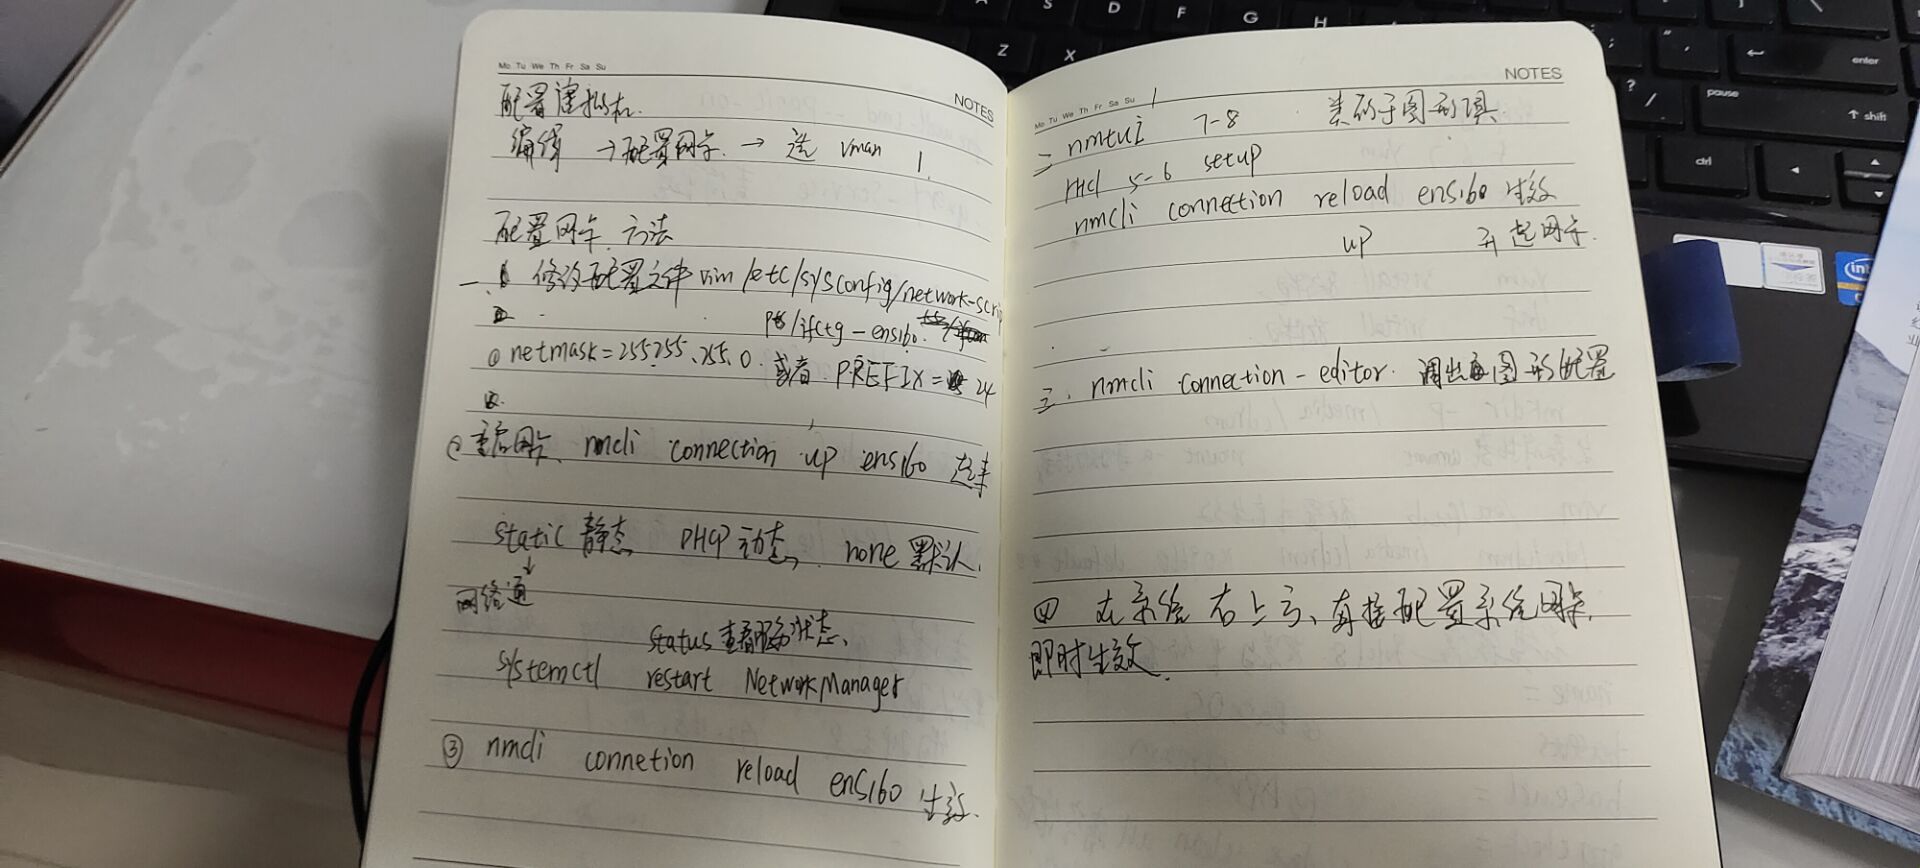 Mo Tu We Th Fr Sa Su
NOTES
配置虚拟机.
编辑 → 配置网卡. → 选 vman 1.
配置网卡方法
一. 修改配置文件 vim /etc/sysconfig/network-scri
pts/ifcfg-ens160.
① netmask=255.255.255.0. 或者. PREFIX= 24
② 重启网卡、nmcli connection up ens160 起来
static 静态 DHCP 动态, none 默认.
↓
网络通
status 查看服务状态、
systemctl restart NetworkManager
③ nmcli connetion reload ens160 生效.
Mo Tu We Th Fr Sa Su
NOTES
二 nmtui 7-8 类似于图形具
rHel 5-6 setup
nmcli connettion reload ens160 生效
up 开起网卡.
三. nmcli connettion-editor. 调出图形配置
四 在系统右上方、直接配置系统网卡,
即时生效.
A S D F G H
Z X
enter
pause
shift
ctrl
alt
intel